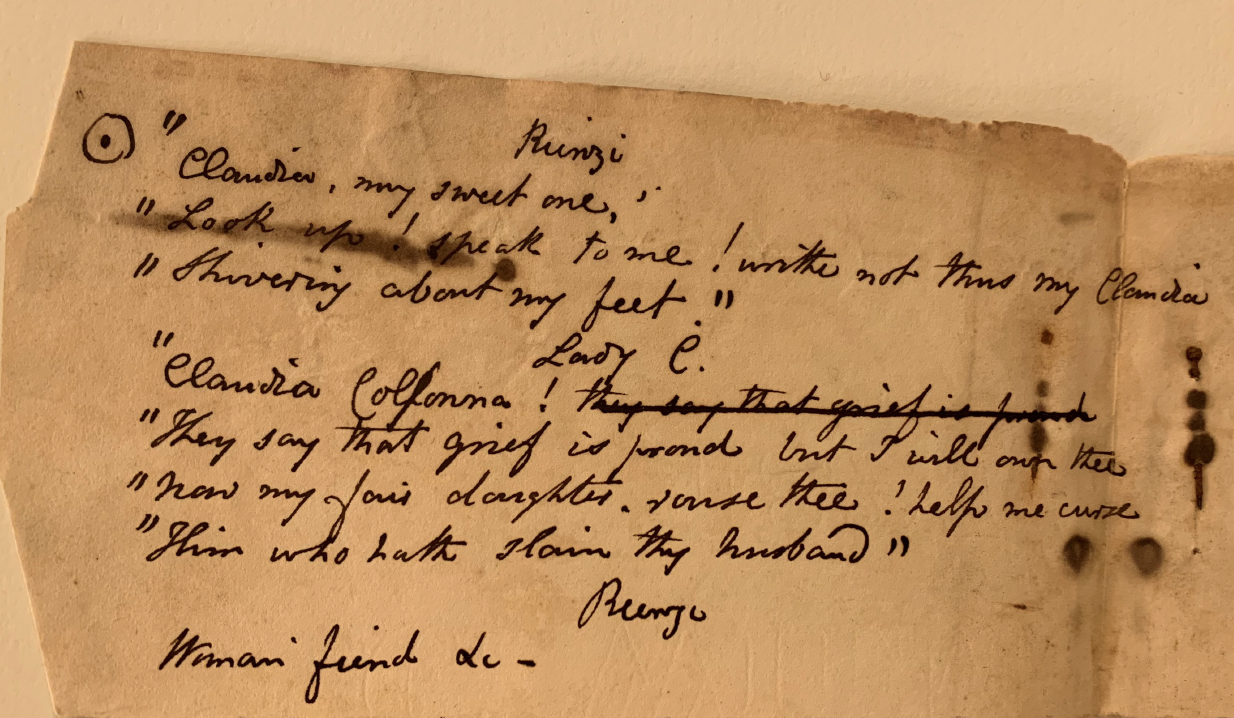 Rienzi
"Claudia, my sweet one,
"Look up! speak to me! writhe not thus my Claudia
"Shivering about my feet."
Lady C.
"Claudia Colonna! they say that grief is proud
"They say that grief is proud but I will own thee
"Now my fair daughter. rouse thee! help me curse
"Him who hath slain thy husband"
Rienzi
Woman fiend &c -